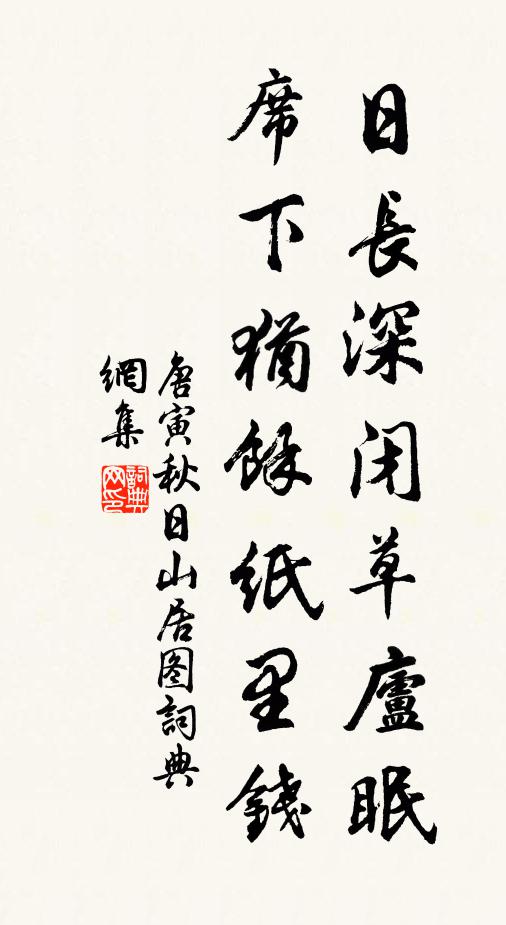 日長深閉草廬眠
席下猶餘紙里錢
唐寅秋日山居图詞典
網集
詞典網印